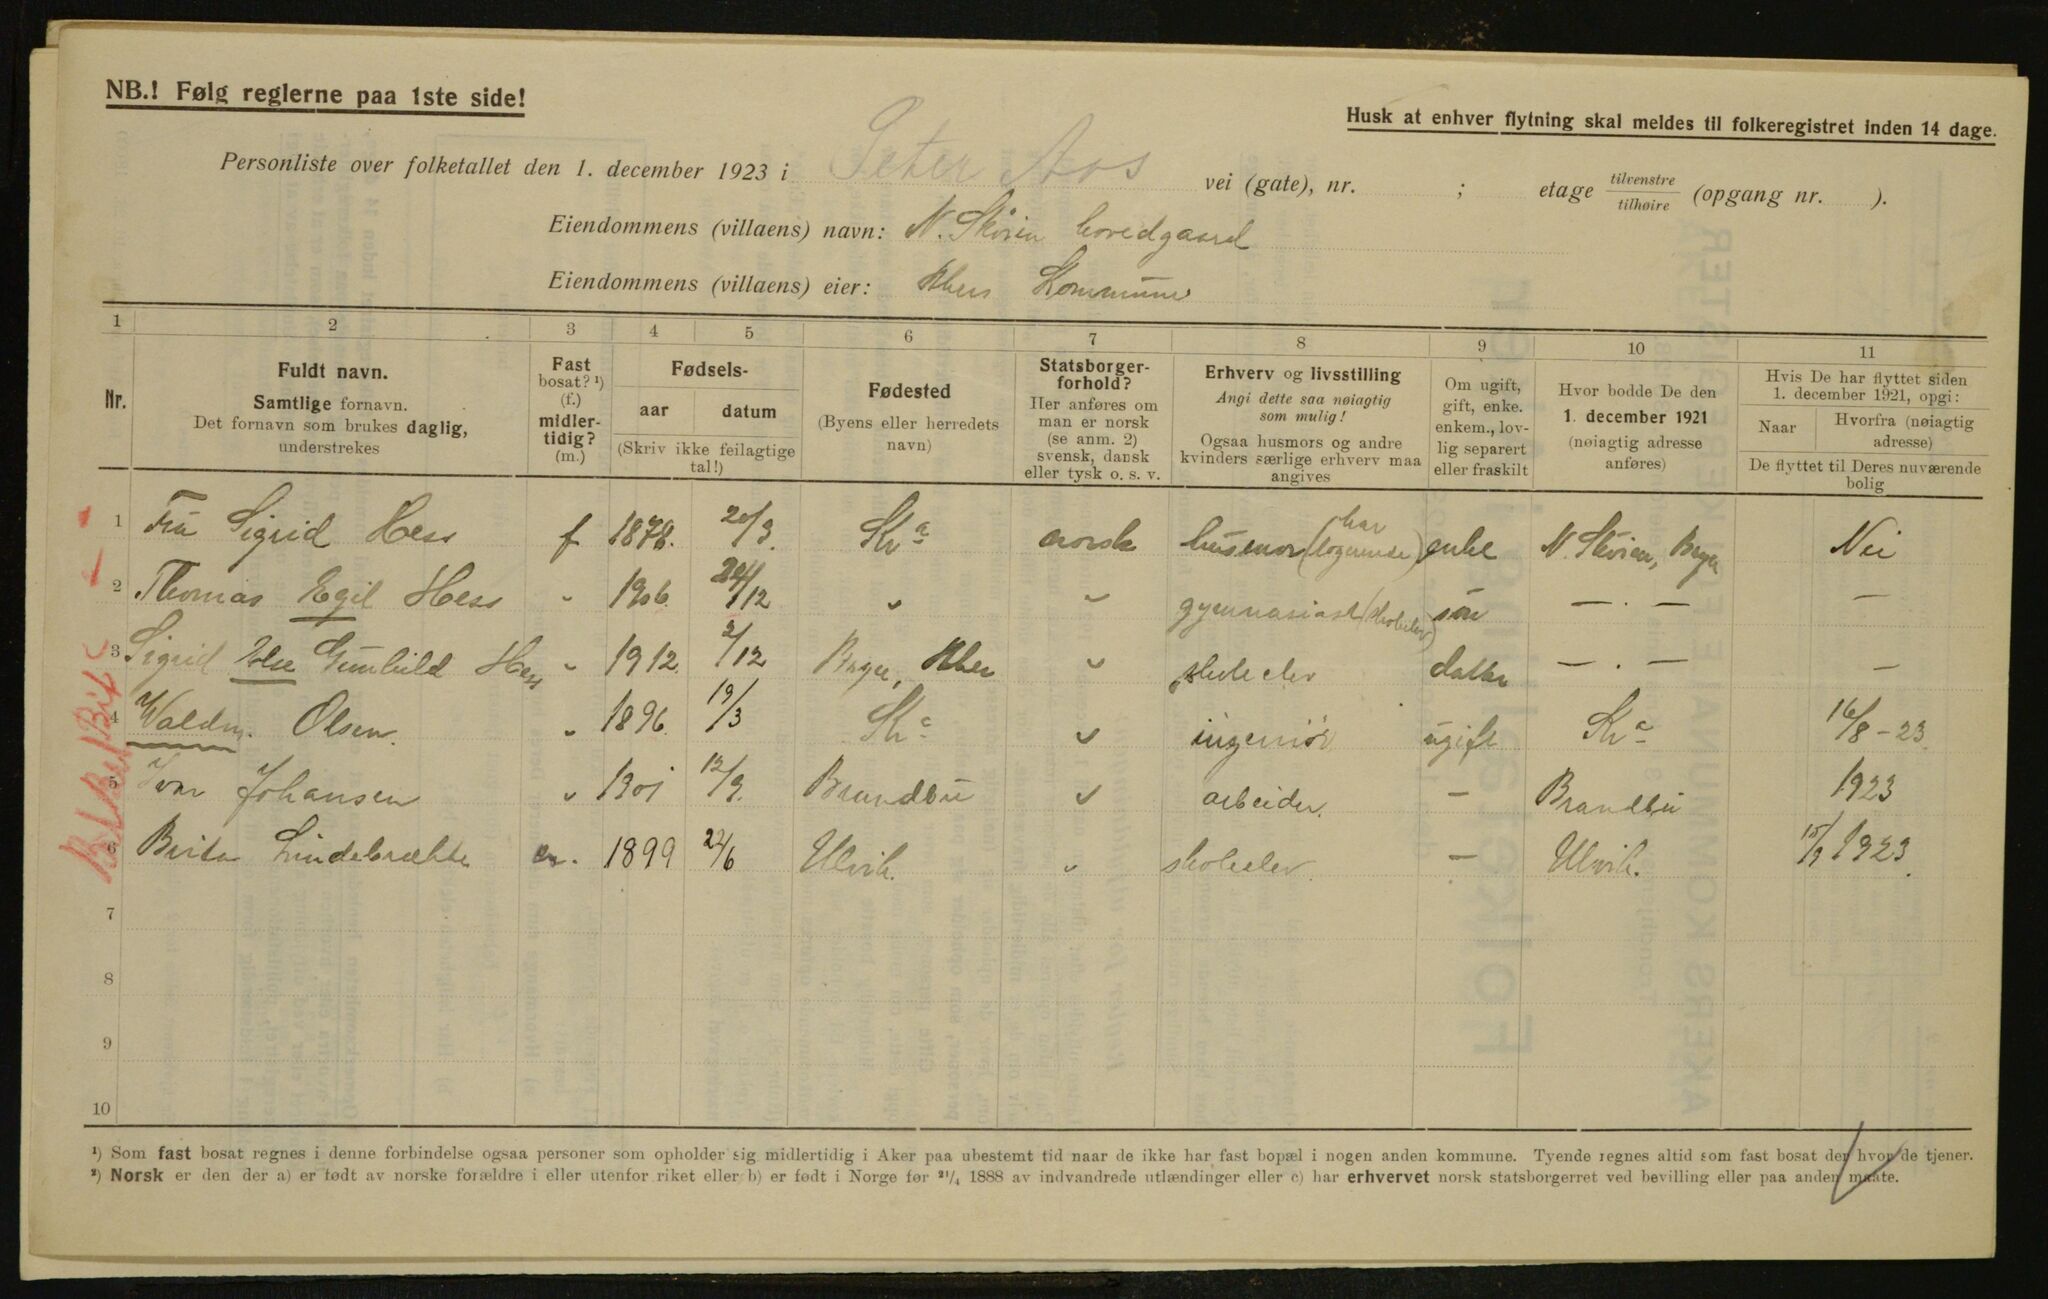 NB.! Følg reglerne paa 1ste side!
Husk at enhver flytning skal meldes til folkeregistret inden 14 dage.
Personliste over folketallet den 1. december 1923 i Peter Aas vei (gate), nr. ; etage tilvenstre/tilhøire (opgang nr. ).
Eiendommens (villaens) navn: N. Skøien hovedgaard
Eiendommens (villaens) eier: Akers Kommune
1 2 3 4 5 6 7 8 9 10 11
Nr.
Fuldt navn.
Samtlige fornavn.
Det fornavn som brukes daglig,
understrekes
Fast
bosat? ¹)
(f.)
midler-
tidig?
(m.)
Fødsels-
aar datum
(Skriv ikke feilagtige
tal!)
Fødested
(Byens eller herredets
navn)
Statsborger-
forhold?
Her anføres om
man er norsk
(se anm. 2)
svensk, dansk
eller tysk o. s. v.
Erhverv og livsstilling
Angi dette saa nøiagtig
som mulig!
Ogsaa husmors og andre
kvinders særlige erhverv maa
angives
Om ugift,
gift, enke.
enkem., lov-
lig separert
eller fraskilt
Hvor bodde De den
1. december 1921
(nøiagtig adresse
anføres)
Hvis De har flyttet siden
1. december 1921, opgi:
Naar Hvorfra (nøiagtig
adresse)
De flyttet til Deres nuværende
bolig
1 Fru Sigrid Hess f 1878. 20/3. Kr a norsk husmor (har logerende) enke N. Skøien, Bryn Nei
2 Thomas Egil Hess " 1906 /12 " " gymnasiast (skoleelev) søn — . — —
3 Sigrid Else Gunhild Hess " 1912. 2/12 Bryn, Aker " skoleelev datter — . — —
4 Waldm. Olsen. " 1896 19/3 Kr a " ingeniør ugift Kr a 16/8 - 23.
5 Ivar Johansen " 1901 12/9. Brandbu " arbeider. — Brandbu 1923
6 Brita Lindebrække m. 1899 22/6 Ulvik. " skoleelev. — Ulvik. 15/9 1923.
7
8
9
10
¹) Som fast bosat regnes i denne forbindelse ogsaa personer som opholder sig midlertidig i Aker paa ubestemt tid naar de ikke har fast bopæl i nogen anden kommune. Tyende regnes altid som fast bosat der hvor de tjener.
²) Norsk er den der a) er født av norske forældre i eller utenfor riket eller b) er født i Norge før 21/4 1888 av indvandrede utlændinger eller c) har erhvervet norsk statsborgerret ved bevilling eller paa anden maate.